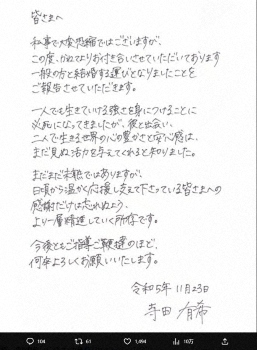 皆さまへ
私事で大変恐縮ではございますが、
この度、かねてよりお付き合いさせていただいております
一般の方と結婚する運びとなりましたことを
ご報告させていただきます。
一人でも生きていける強さを身につけることに
必死になってきましたが、彼と出会い、
二人で生きる世界の心の豊かさと安心感は、
まだ見ぬ活力を与えてくれると知りました。
まだまだ未熟ではありますが、
日頃から温かく応援し支えて下さっている皆さまへの
感謝だけは忘れぬよう、
より一層精進していく所存です。
今後ともご指導ご鞭撻のほど、
何卒よろしくお願いいたします。
令和5年 11月23日
寺田 有希
104 61 1,494 10万